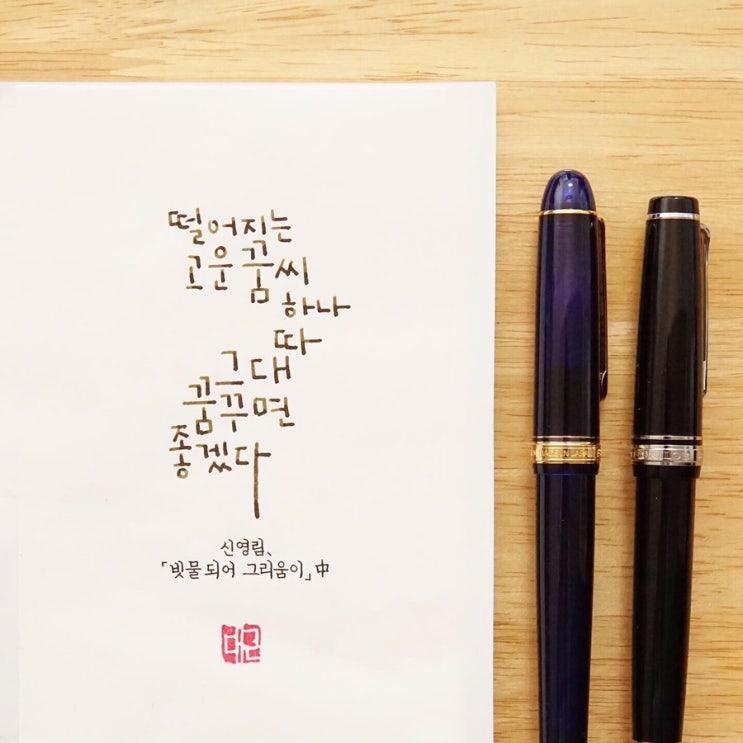 떨어지는
고운 꿈씨
하나
따
그대
꿈꾸면
좋겠다
신영림、
「빗물 되어 그리움이」中